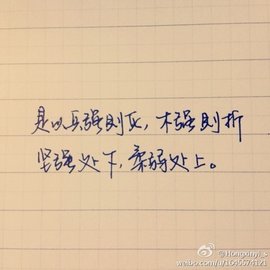 是以兵强则灭，木强则折
坚强处下，柔弱处上。
@Hongxinyi_s
weibo.com/u/1645574121